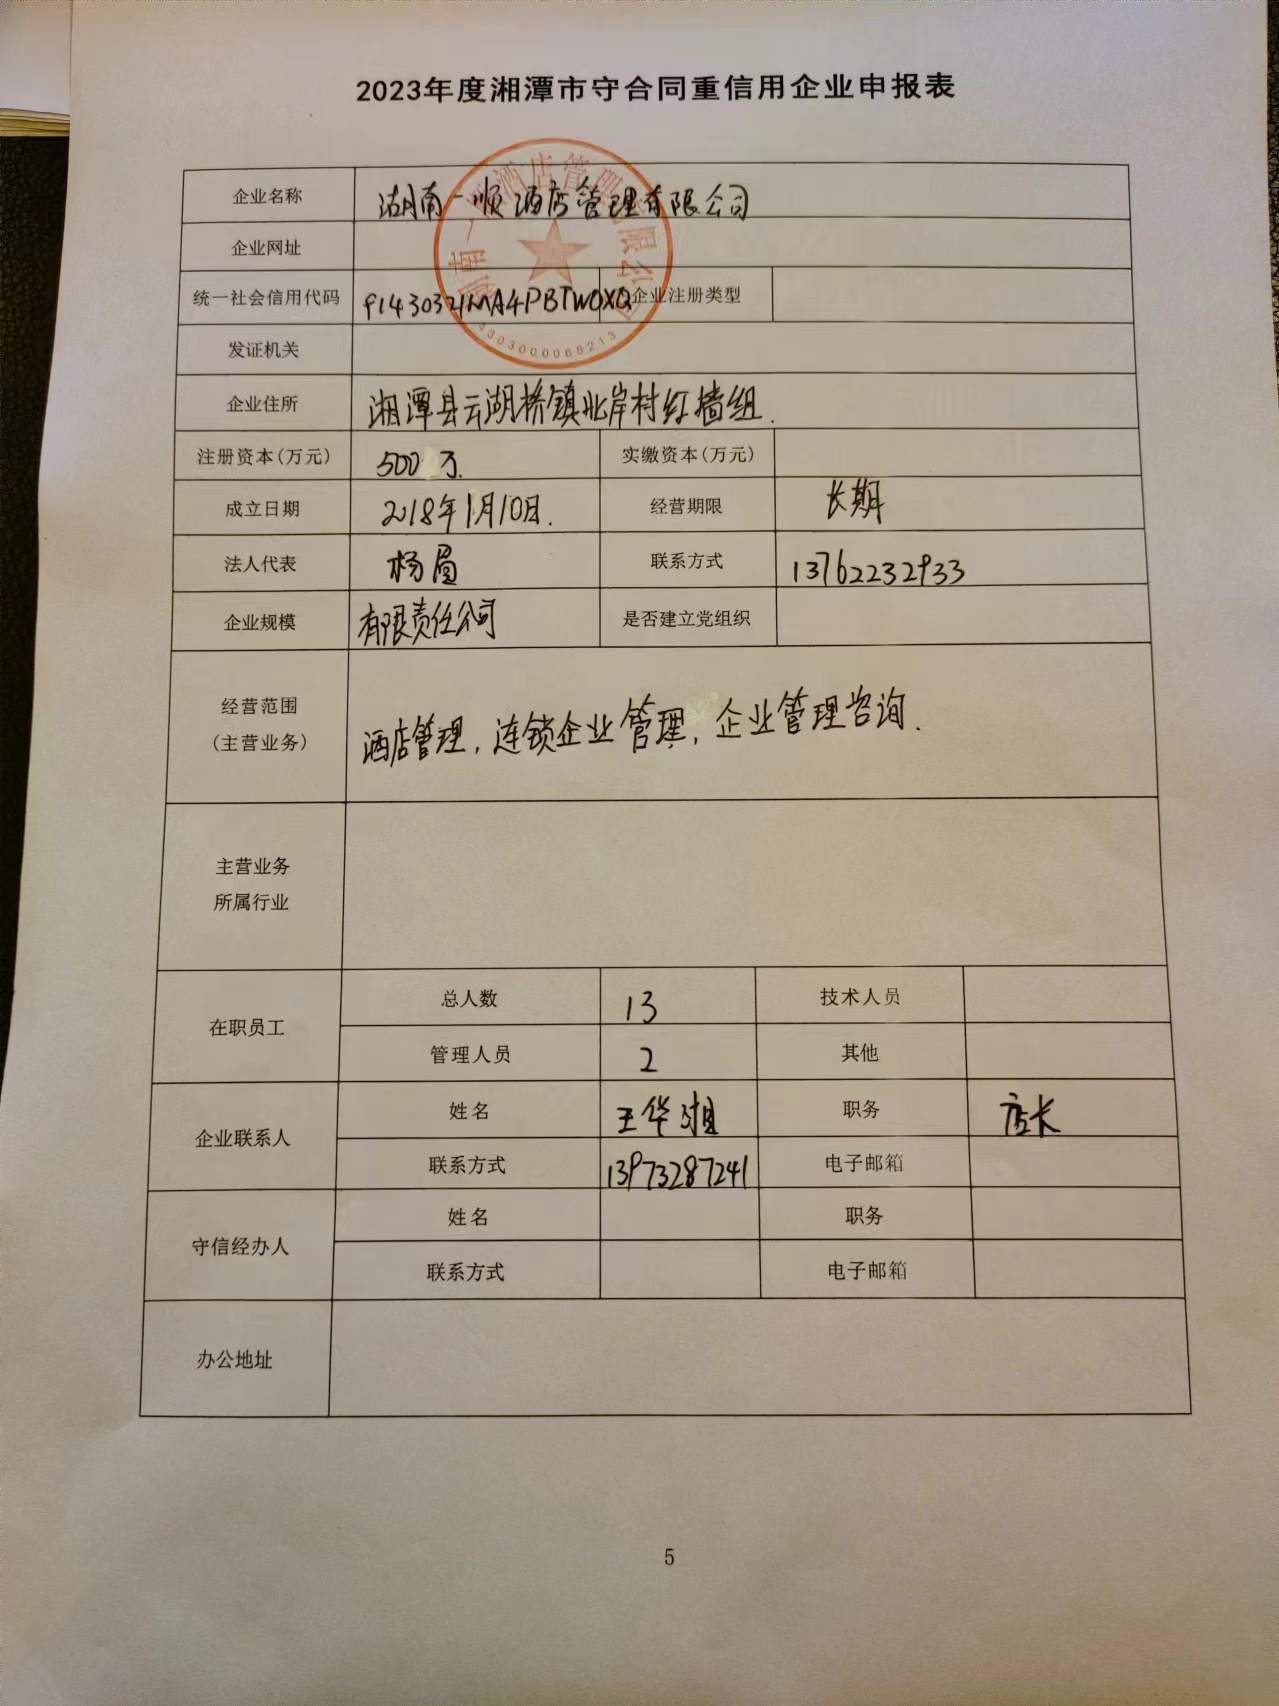 2023年度湘潭市守合同重信用企业申报表
企业名称 湖南一顺酒店管理有限公司
企业网址
统一社会信用代码 91430321MA4PBTW0XQ 企业注册类型
4303000068213
发证机关
企业住所 湘潭县云湖桥镇北岸村红墙组.
注册资本(万元) 500万. 实缴资本(万元)
成立日期 2018年1月10日. 经营期限 长期
法人代表 杨眉 联系方式 13762232933
企业规模 有限责任公司 是否建立党组织
经营范围
(主营业务)
酒店管理, 连锁企业管理, 企业管理咨询.
主营业务
所属行业
在职员工 总人数 13 技术人员
管理人员 2 其他
企业联系人 姓名 王华湘 职务 店长
联系方式 13973287241 电子邮箱
守信经办人 姓名 职务
联系方式 电子邮箱
办公地址
5